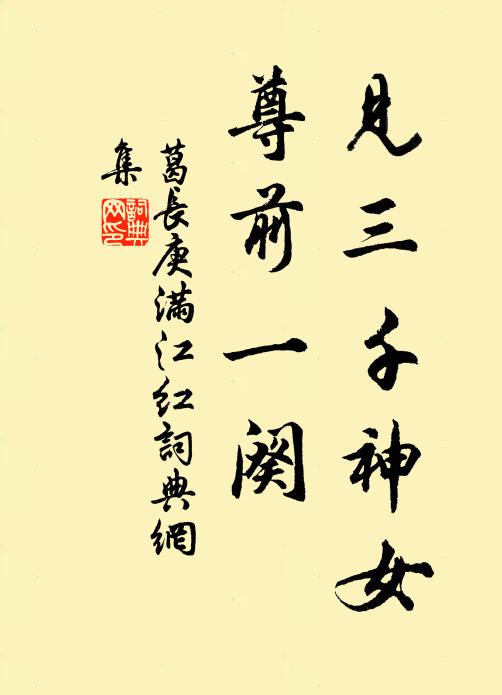 見三千神女
尊前一闋
葛長庚滿江红詞典網
集
詞典網印